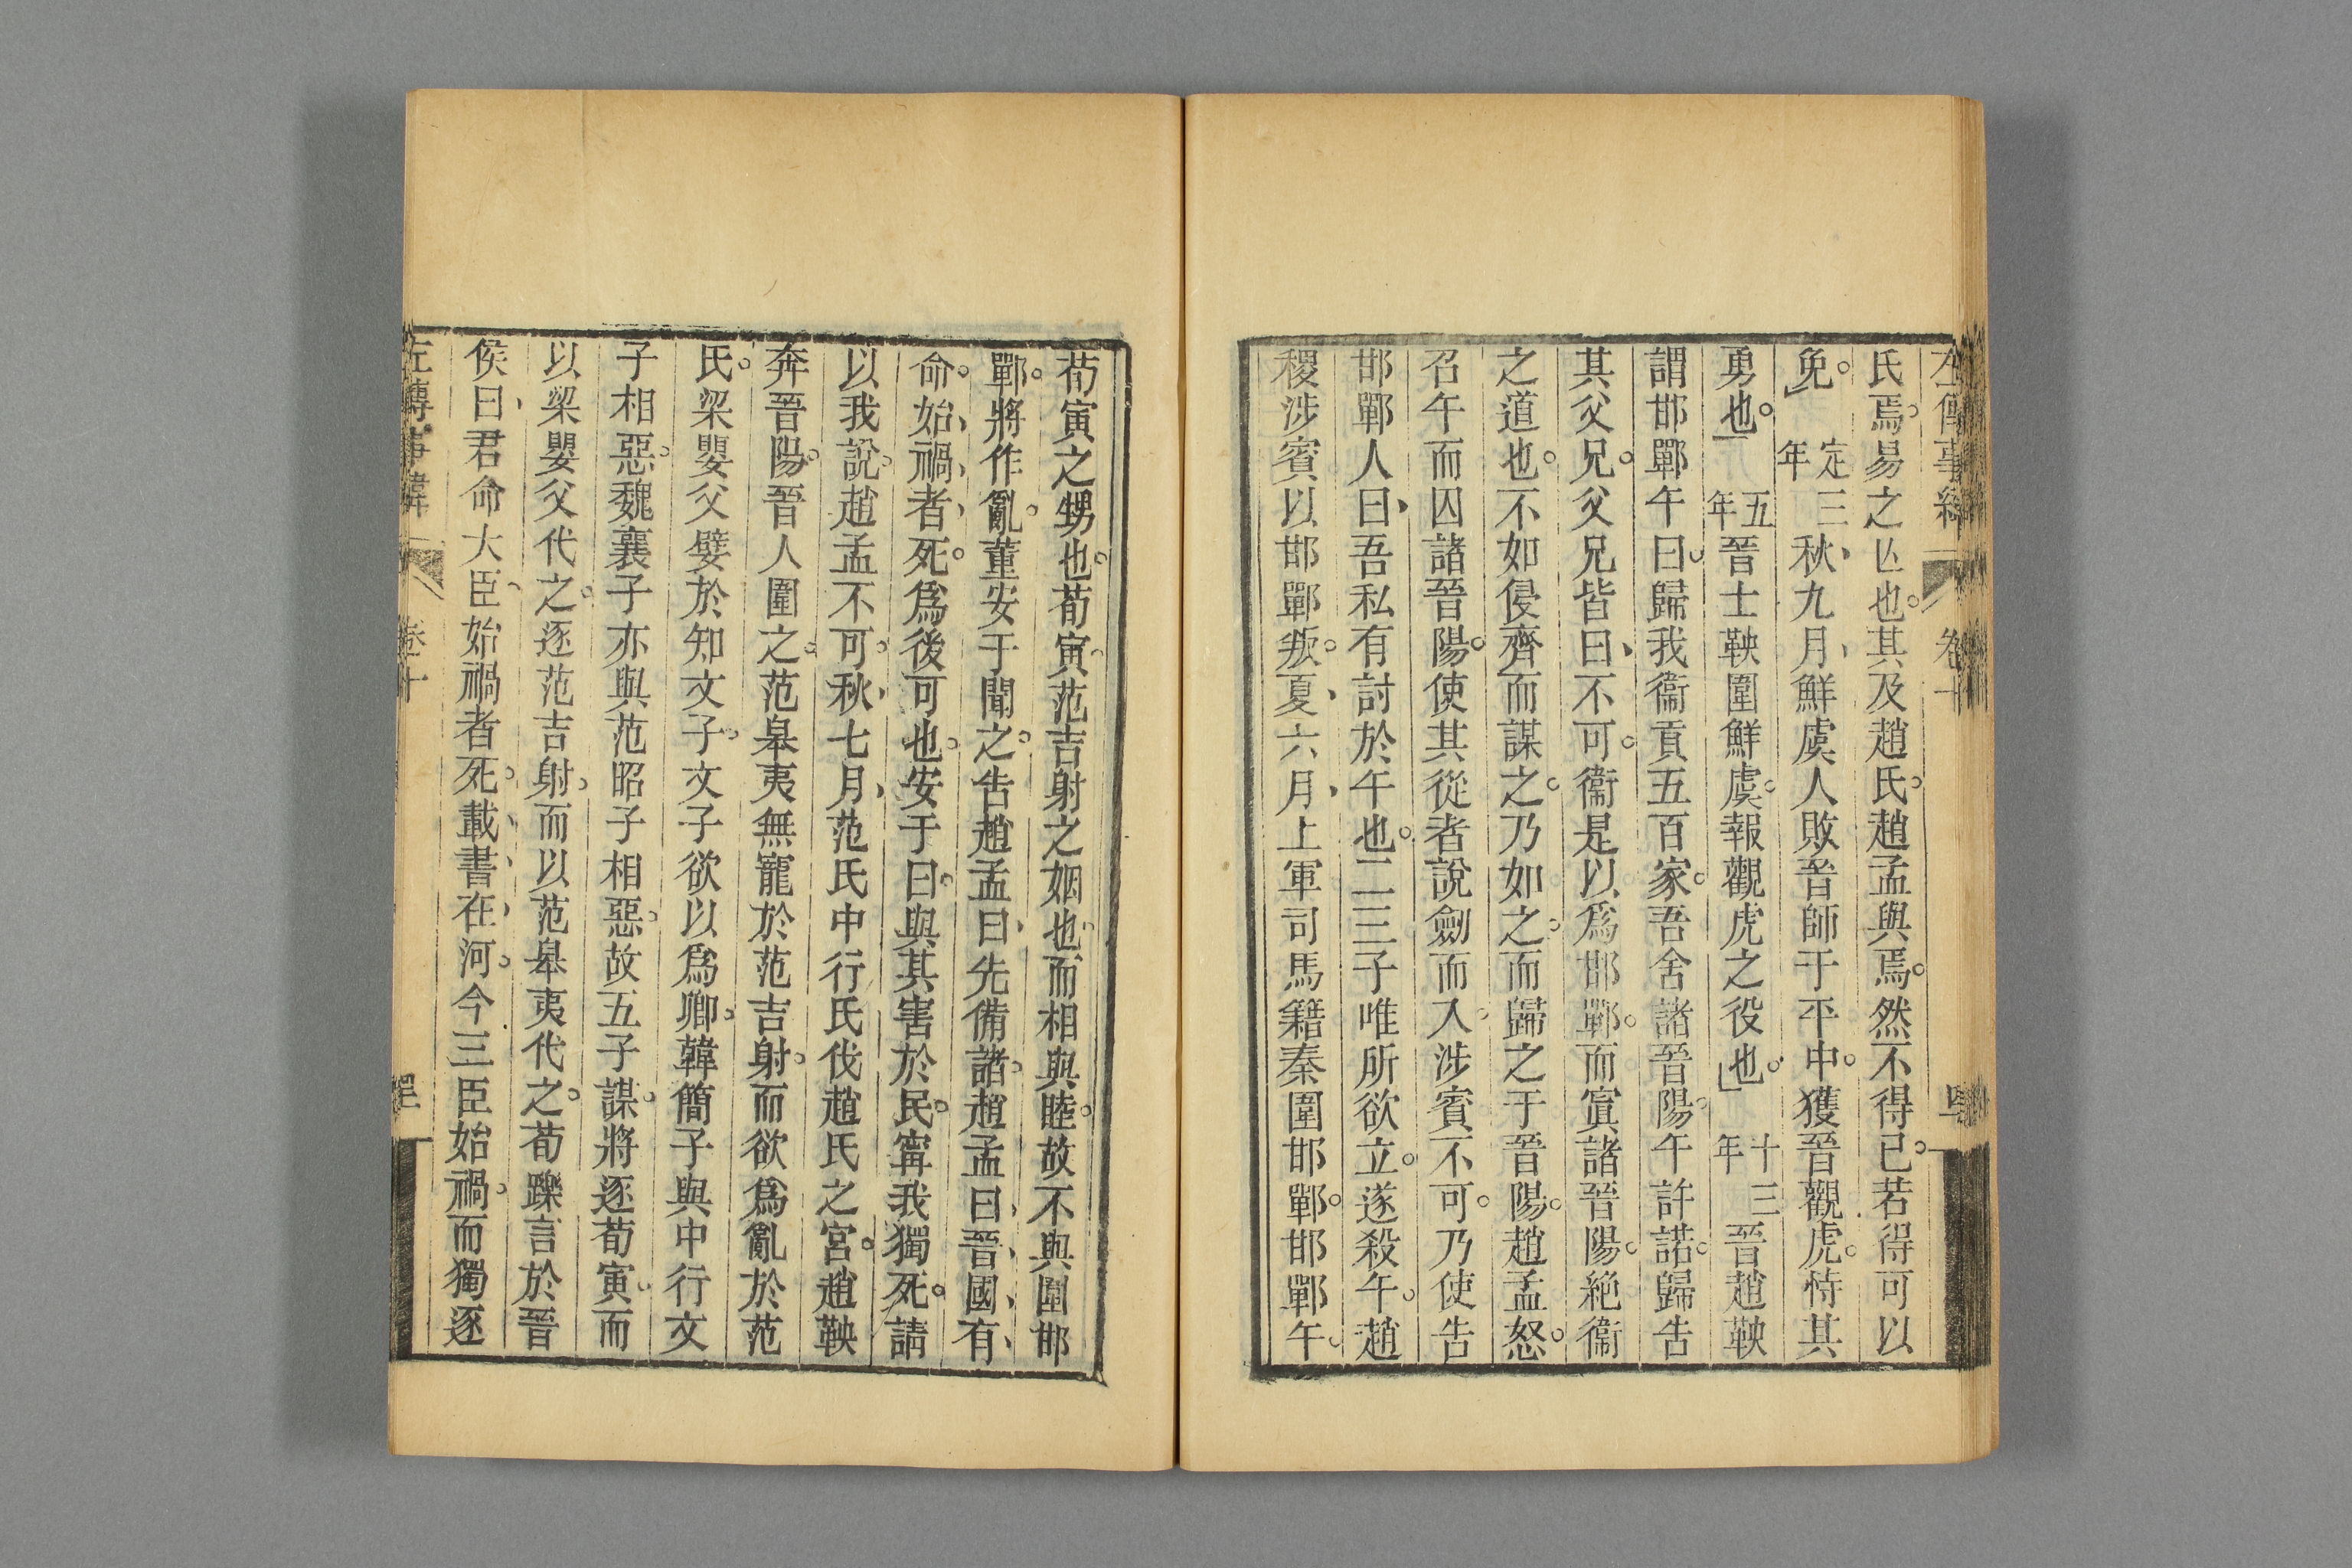 氏焉易之亾也其及趙氏趙孟與焉然不得已若得可以
免 定三年 秋九月鮮虞人敗晉師于平中獲晉觀虎恃其
勇也 五年 晉士鞅圍鮮虞報觀虎之役也 十三年 晉趙鞅
謂邯鄲午曰歸我衞貢五百家吾舍諸晉陽午許諾歸告
其父兄父兄皆曰不可衞是以爲邯鄲而寘諸晉陽絶衞
之道也不如侵齊而謀之乃如之而歸之于晉陽趙孟怒
召午而囚諸晉陽使其從者說劒而入涉賓不可乃使告
邯鄲人曰吾私有討於午也二三子唯所欲立遂殺午趙
稷涉賓以邯鄲叛夏六月上軍司馬籍秦圍邯鄲邯鄲午
荀寅之甥也荀寅范吉射之姻也而相與睦故不與圍邯
鄲將作亂董安于聞之告趙孟曰先備諸趙孟曰晉國有
命始禍者死爲後可也安于曰與其害於民寗我獨死請
以我說趙孟不可秋七月范氏中行氏伐趙氏之宮趙鞅
奔晉陽晉人圍之范皋夷無寵於范吉射而欲爲亂於范
氏梁嬰父嬖於知文子文子欲以爲卿韓簡子與中行文
子相惡魏襄子亦與范昭子相惡故五子謀將逐荀寅而
以梁嬰父代之逐范吉射而以范皋夷代之荀躒言於晉
侯曰君命大臣始禍者死載書在河今三臣始禍而獨逐
左傳事緯 卷十